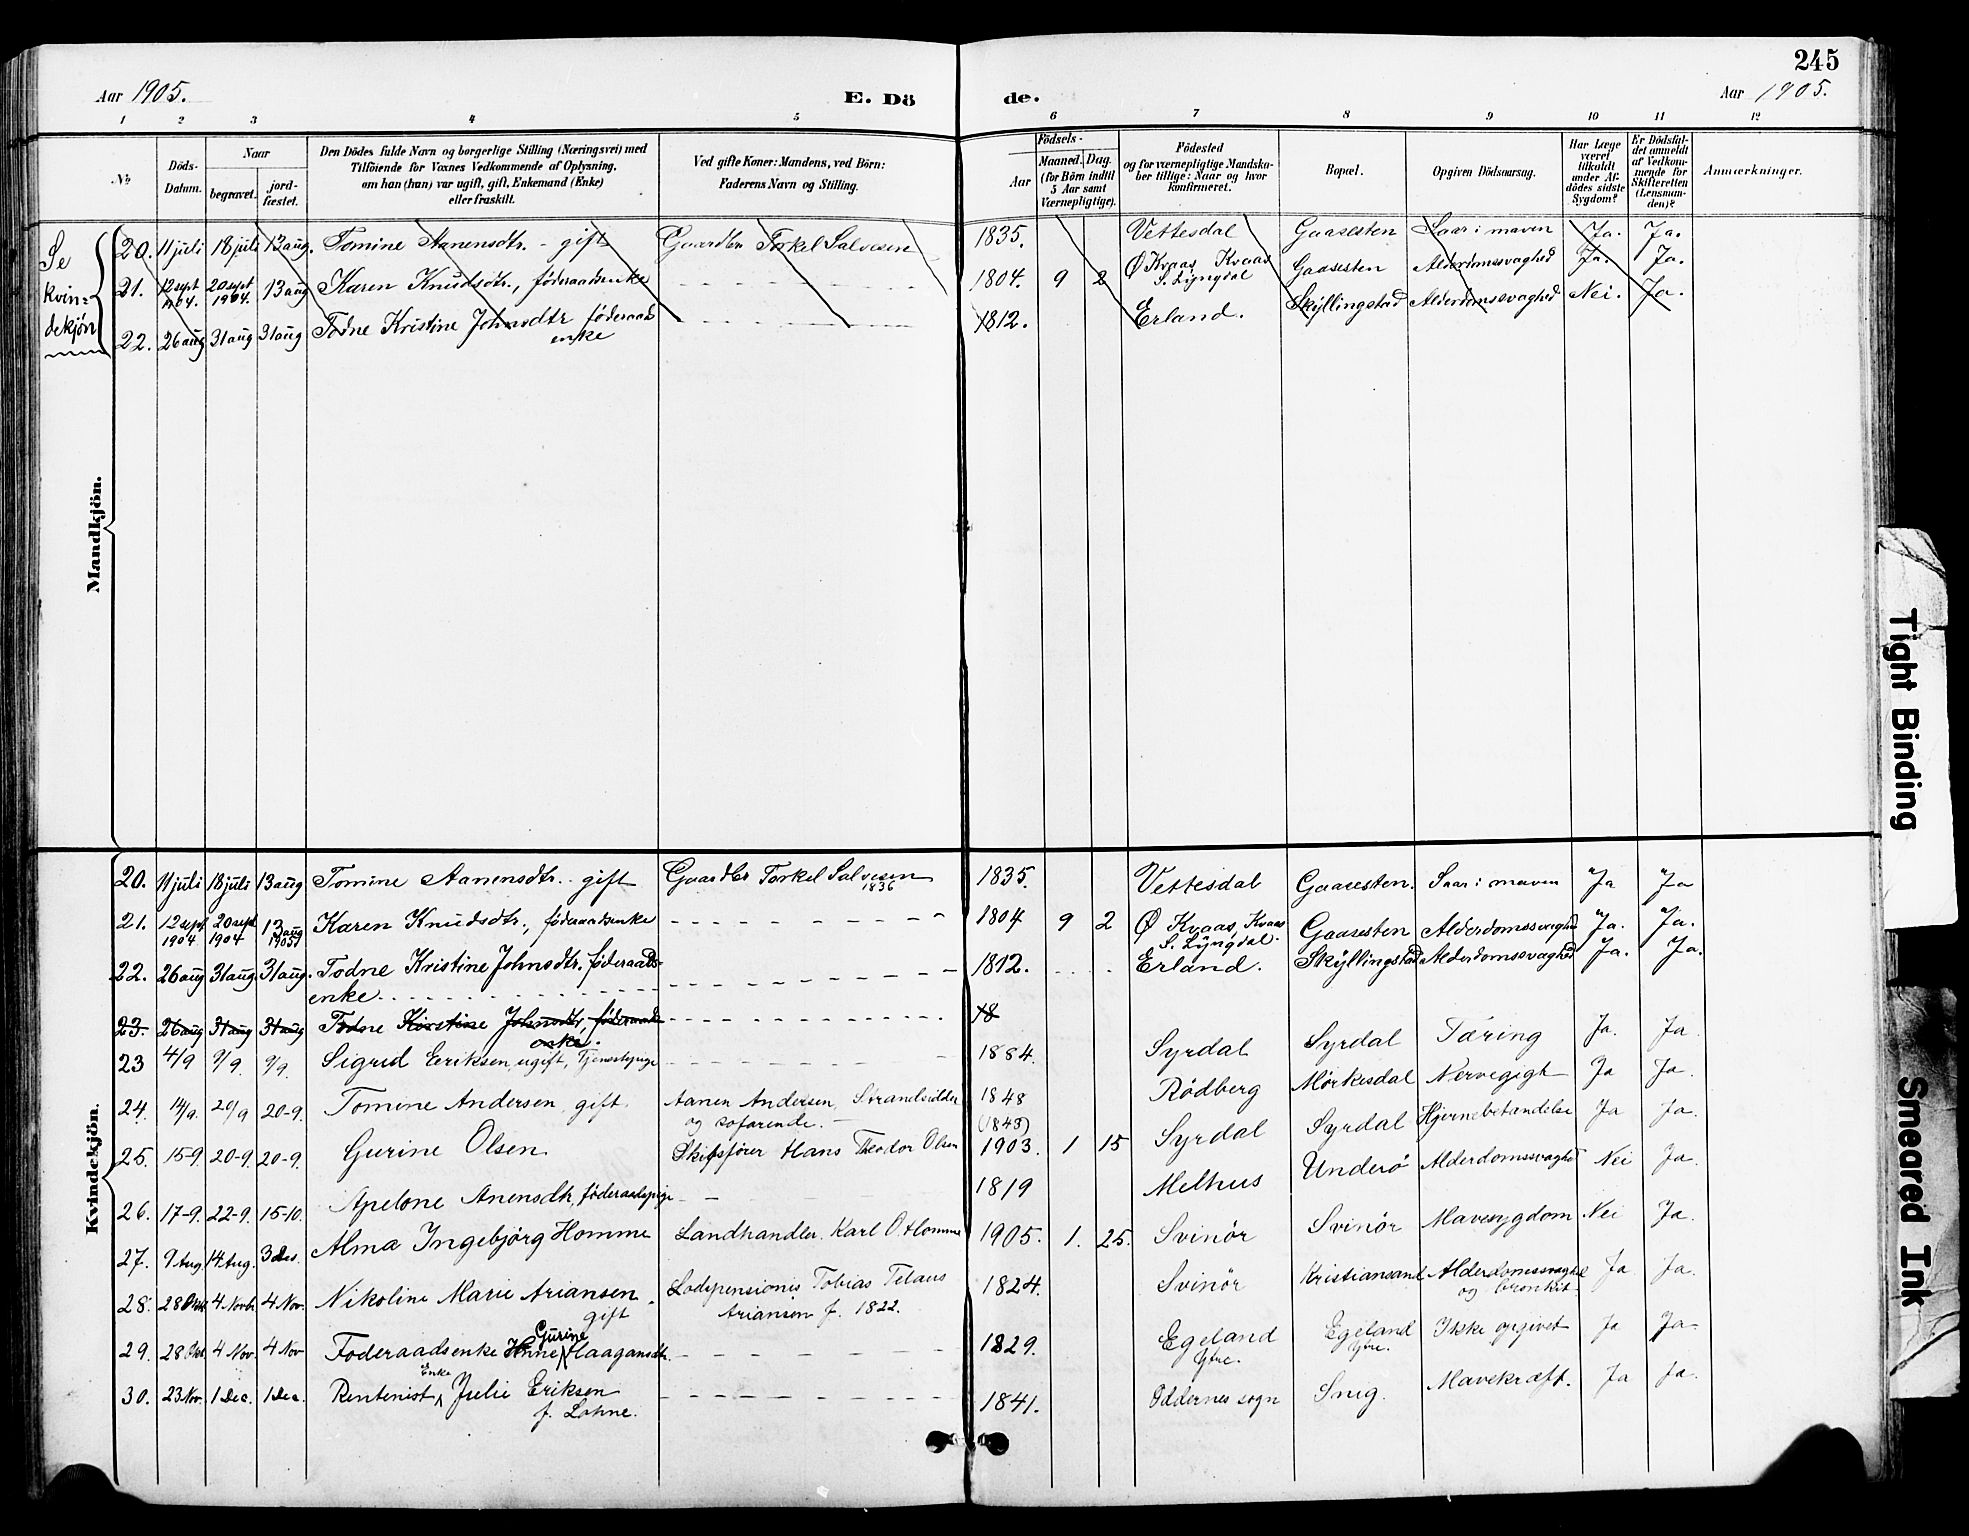 245
Aar 1905.
E. Dö
de.
Aar 1905.
1 2 3 4 5 6 7 8 9 10 11 12
No
Döds-
Datum.
Naar
begravet.
jord-
fæstet.
Den Dödes fulde Navn og borgerlige Stilling (Næringsvei) med
Tilföiende for Voxnes Vedkommende af Oplysning.
om han (hun) var ugift, gift, Enkemand (Enke)
eller fraskilt.
Ved gifte Koner: Mandens, ved Börn:
Faderens Navn og Stilling.
Födsels-
Aar
Maaned. Dag.
(for Börn indtil
5 Aar samt
Værnepligtige).
Födested
og for værnepligtige Mandska-
ber tillige: Naar og hvor
konfirmeret.
Bopæl.
Opgiven Dödsaarsag.
Har Læge
været
tilkaldt
under Af-
dödes sidste
Sygdom?
Er Dödsfal-
det anmeldt
af Vedkom-
mende for
Skifteretten
(Lensman-
den)?
Anmærkninger.
Se
kvin-
dekjön
Mandkjön.
20. 11 juli 18 juli 13 aug. Tomine Aanensdtr. - gift Gaardbr Torkel Salvesen 1835. Vettesdal Gaasesten Saar i maven Ja. Ja.
21. 12 sept 1904. 20 sept 1904. 13 aug Karen Knudsdtr., föderaadsenke 1804. 9 2 Ø Kvaas Kvaas Gaasesten Alderdomssvaghed Ja. Ja.
S. Lyngdal
22. 26 aug 31 aug 31 aug Todne Kristine Johnsdtr föderaads 1812. Erland. Skyllingstad Alderdomssvaghed Nei. Ja.
enke
Kvindekjön.
20. 11 juli 18 juli 13 aug Tomine Aanensdtr. - gift Gaardbr Torkel Salvesen 1835. Vettesdal Gaasesten. Saar i maven Ja Ja
1836
21. 12 sept 1904 20 sept 1904 13 aug 1905 Karen Knudsdtr., föderaadsenke 1804 9 2 Ø Kvaas, Kvaas Gaasesten Alderdomssvaghed Ja. Ja.
S. Lyngdal.
22. 26 aug 31 aug 31 aug. Todne Kristine Johnsdtr. föderaads- 1812. Erland. Skyllingstad Alderdomssvaghed Ja. Ja.
enke
23. 26 aug 31 aug 31 aug Todne Kristine Johnsdtr, föderaads 18
enke.
23 4/9 9/9. 9/9. Sigrid Eriksen, ugift, Tjenestepige 1884. Syrdal Syrdal Tæring Ja. Ja
24. 14/9. 20/9 20-9. Tomine Andersen, gift Aanen Andersen, Strandsidder 1848 Rödberg Mörkesdal Nervegigt Ja Ja.
og søfarende. (1843)
25. 15-9. 20-9. 20-9. Gurine Olsen Skibsförer Hans Theodor Olsen 1903. 1 15 Syrdal Syrdal Hjernebetændelse Ja Ja.
26. 17-9. 22-9. 15-10. Apelone Anensdtr, föderaadspige 1819 Melhus Underö Alderdomssvaghed Nei Ja.
27. 9 Aug. 14 Aug. 3 des. Alma Ingebjörg Homme Landhandler. Karl O. Homme 1905. 1. 25. Svinör Svinör Mavesygdom Nei Ja.
28. 28 Okt 4 Novb. 4 Nov. Nikoline Marie Ariansen Lodspensionis Tobias Telaus 1824. Svinör Kristiansand Alderdomssvaghed Ja Ja.
gift Ariansen f. 1822. og bronkit
29. 28 Okt. 4 Nov. 4 Nov Föderaadsenke Gurine Haagansdtr. 1829. Egeland Egeland Ikke opgivet Ja Ja
Ytre. Ytre.
30. 23 Nov. 1 Dec. 1 Dec. Rentenist Enke Julie Eriksen 1841. Oddernes sogn Snig. Mavekræft. Ja Ja.
f. Lohne.
Tight Binding
Smeared Ink